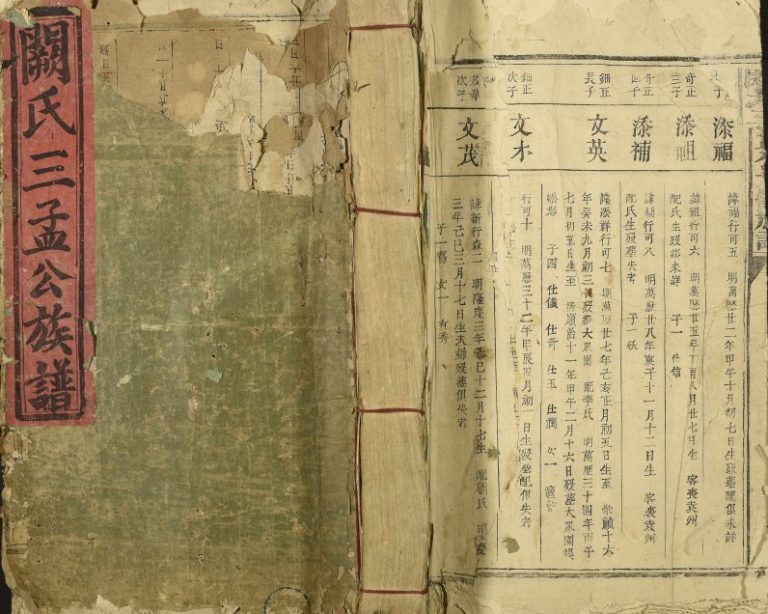 闕氏三孟公族譜
子
添福
諱福行可五 明萬曆廿二年甲午十月初七日生歿葬配俱未詳
奇正
三子
添祖
諱祖行可六 明萬曆廿五年丁酉八月廿七日生 客喪袁州
配氏生歿葬未詳 子一 仕信
奇正
四子
添補
諱補行可八 明萬曆廿八年庚子十一月十二日生 客喪袁州
配氏生歿葬失考 子一
細正
長子
文英
諱添祥行可七 明萬曆廿七年己亥正月初五日生至 崇禎十六
年癸未九月初三日歿葬大眾園 配李氏 明萬曆三十四年丙午
七月初五日生至 清順治十一年甲午二月十六日歿葬大眾園
形 子四 仕儀 仕奇 仕玉 仕潤 女一 適
細正
次子
文木
行可十 明萬曆三十二年甲辰四月初一日生歿葬配俱失考
次子
文茂
諱新行森二 明隆慶三年己巳十二月十七生 配劉氏 明隆慶
三年己巳三月十七日生夫婦歿葬俱失考
子一 女一 有秀